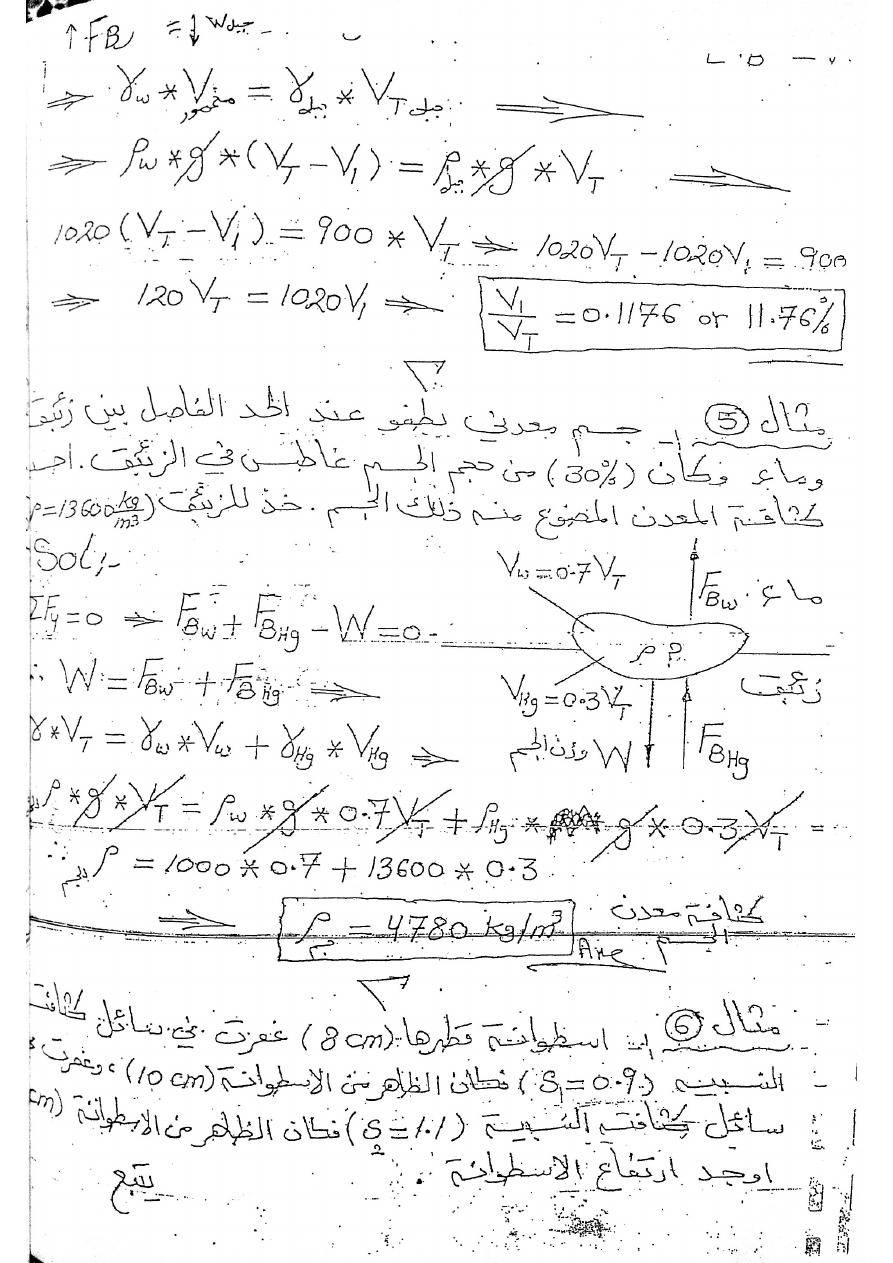 ↑FB = ↓W جليد
⇒ γw * V مغمور = γ جليد * VT جليد ⇒
⇒ ρw * g * (VT − V1) = ρ جليد * g * VT ⇒
1020 (VT − V1) = 900 * VT ⇒ 1020VT − 1020V1 = 900
⇒ 120 VT = 1020V1 ⇒ V1/VT = 0.1176 or 11.76%
مثال 5 :- جسم معدني يطفو عند الحد الفاصل بين زئبق
وماء وكان (30%) من حجم الجسم غاطس في الزئبق. اجد
كثافة المعدن المصنوع منه ذلك الجسم. خذ للزئبق (ρ=13600 kg/m3
Sol;-
Vw = 0.7VT
FBw ماء
ΣFy = 0 ⇒ FBw + FBHg − W = 0
ρ ?
∴ W = FBw + FBHg ⇒
VHg = 0.3VT
زئبق
γ*VT = γw*Vw + γHg * VHg ⇒
وزن الجسم W
FBHg
ρ * g * VT = ρw * g * 0.7VT + ρHg * g * 0.3VT =
∴ ρ جسم = 1000 * 0.7 + 13600 * 0.3
⇒ ρ جسم = 4780 kg/m3 كثافة معدن الجسم
Ans
مثال 6 :- اسطوانة قطرها (8 cm) غمرت في سائل كثافت
النسبية (S1 = 0.9) فكان الظاهر من الاسطوانة (10 cm) ، وغمرت
سائل كثافته النسبية (S2 = 1.1) فكان الظاهر من الاسطوانة (cm
اوجد ارتفاع الاسطوانة .
يتبع